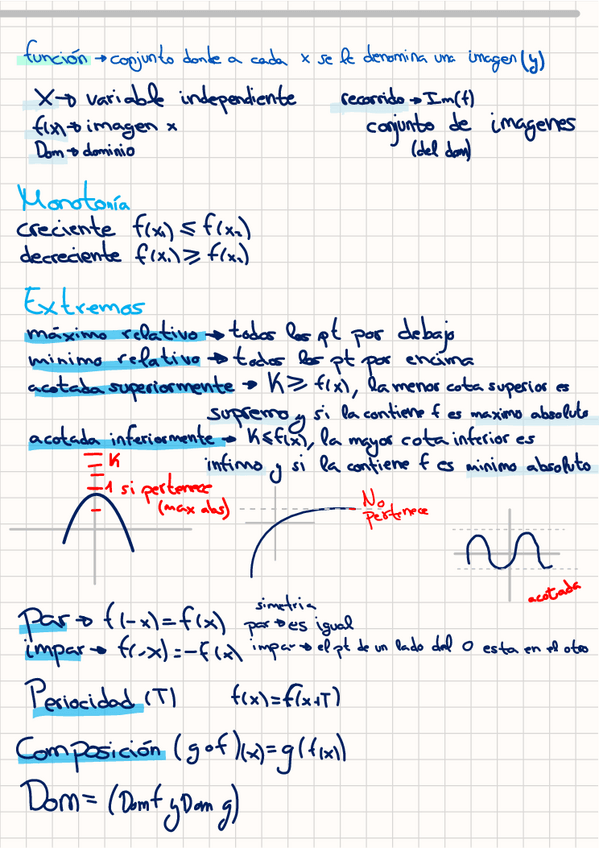 función → conjunto donde a cada x se le denomina una imagen (y)
X → variable independiente
f(x) → imagen x
Dom → dominio
recorrido → Im(f)
conjunto de imagenes
(del dom)
Monotonía
creciente f(x₁) ≤ f(x₂)
decreciente f(x₁) ≥ f(x₂)
Extremos
máximo relativo → todos los pt por debajo
minimo relativo → todos los pt por encima
acotada superiormente → K ≥ f(x), la menor cota superior es
supremo y si la contiene f es maximo absoluto
acotada inferiormente → K ≤ f(x), la mayor cota inferior es
infimo y si la contiene f es minimo absoluto
K
1 si pertenece
(max abs)
No
pertenece
acotada
Par → f(-x) = f(x)
impar → f(-x) = -f(x)
simetria
par → es igual
impar → el pt de un lado del 0 esta en el otro
Periocidad (T) f(x) = f(x+T)
Composición (g o f)(x) = g(f(x))
Dom = (Dom f y Dom g)